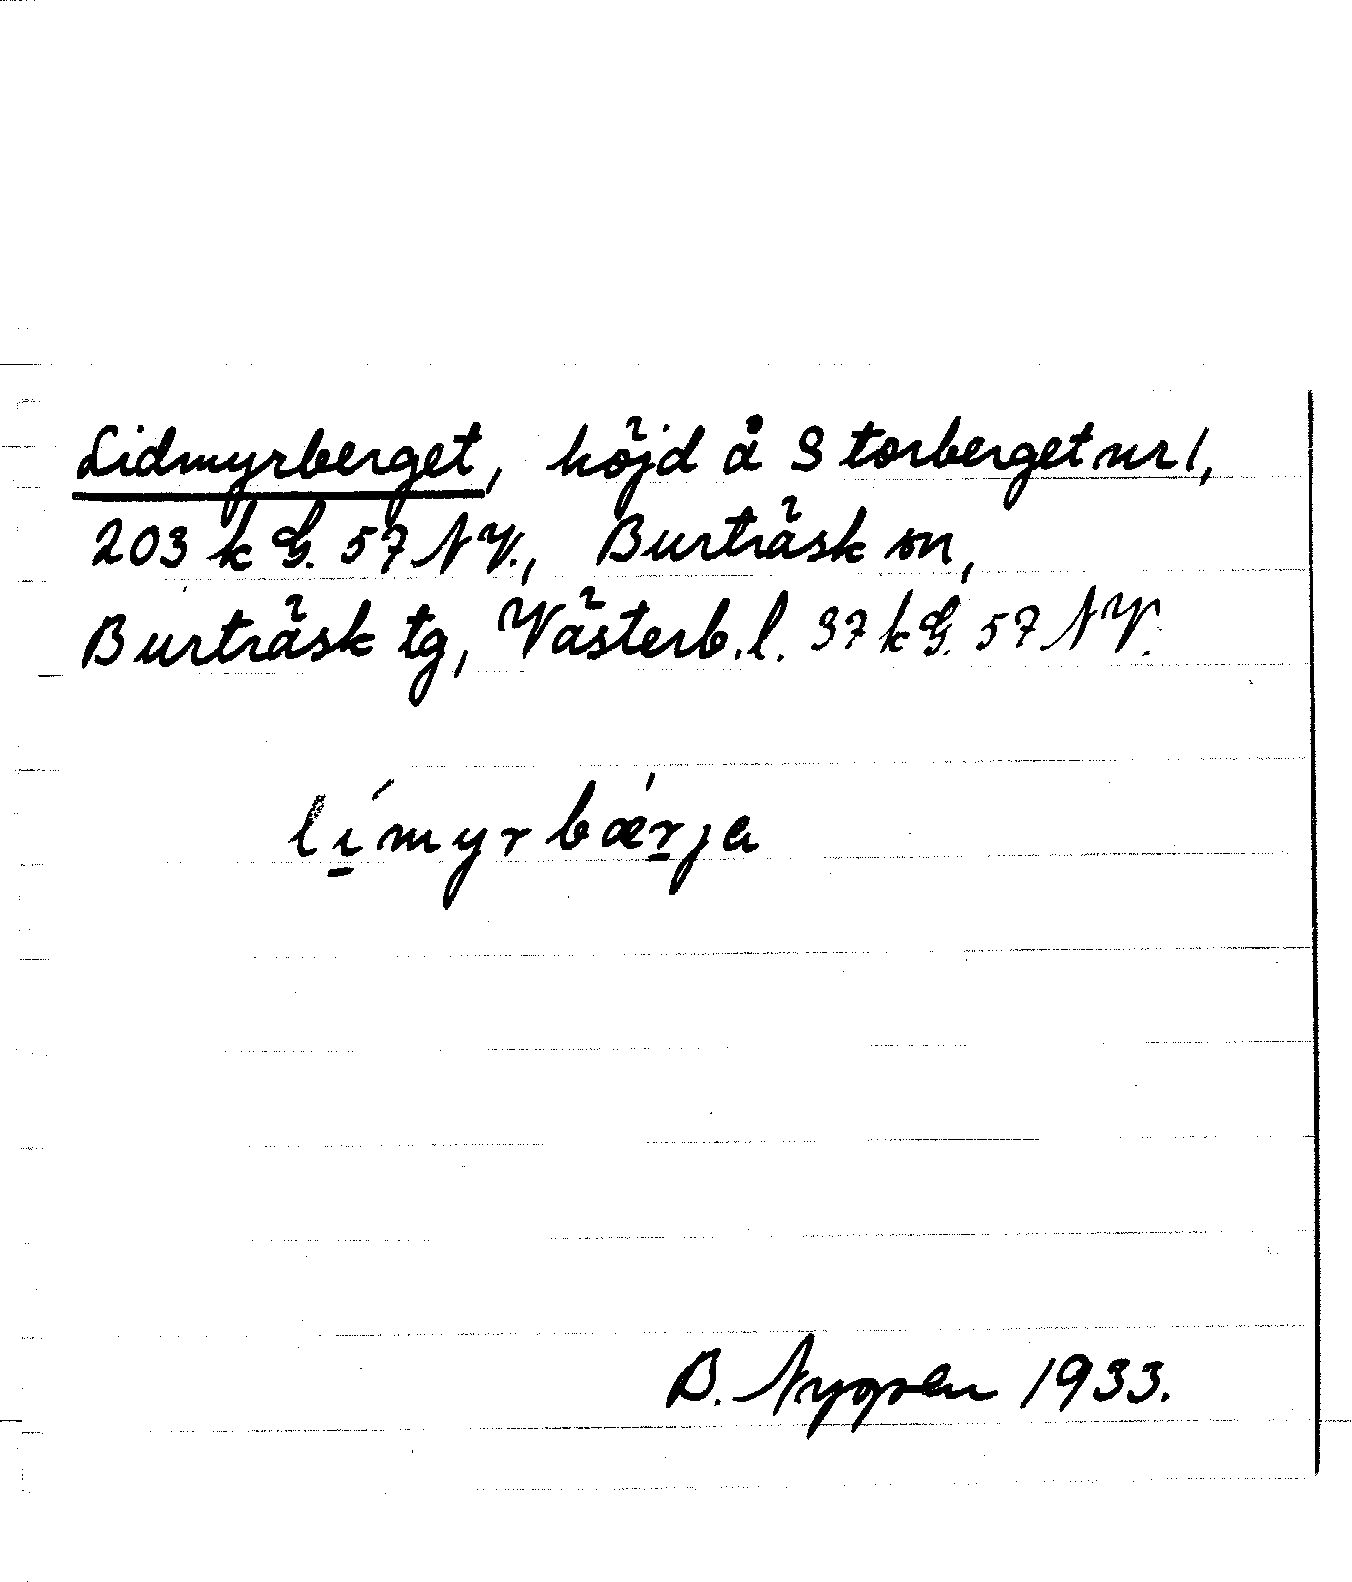 Lidmyrberget, höjd å Storberget nr 1,
203 k G. 57 NV., Burträsk sn,
Burträsk tg, Västerb. l. 37 k G. 57 NV.
límyrbǽrja
B. Nygren 1933.